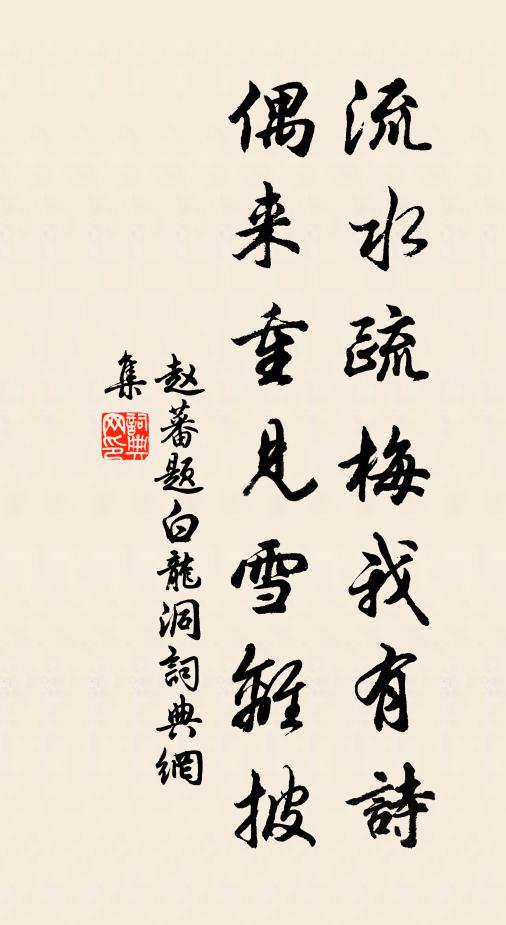 流水疏梅我有詩
偶来重見雪離披
赵蕃題白龍洞詞典網
集
詞典网印